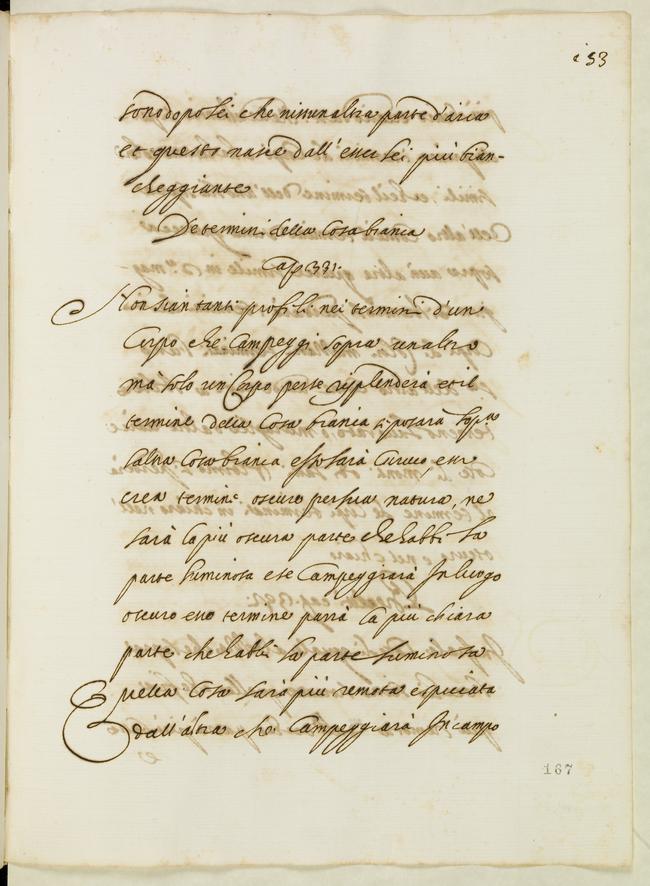 153
sonodopo lei che nissunaltra parte d'aria
et questo nasce dall'esser lei più bian-
cheggiante
De termini della Cosa bianca
Cap 331.
Non sian tanti profili nei termini d'un
Corpo che Campeggi sopra unaltro
mà solo un Corpo per se risplenderà et il
termine della Cosa bianca si posarà sopra
saltra Cosa bianca, esso sarà
crea termine oscuro per sua natura, ne
sarà la più oscura parte che habbi la
parte luminosa e se Campeggiarà In luogo
oscuro esso termine parrà la più chiara
parte che habbi la parte luminosa
Quella Cosa sarà più remota e spiccata
dall'altra che Campeggiarà In campo
167